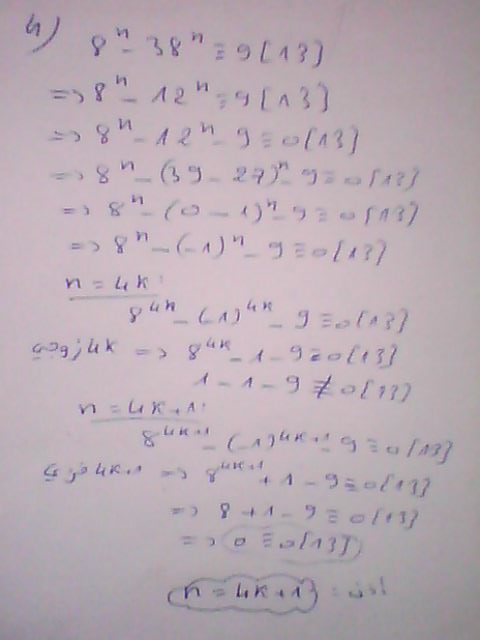 4)
8ⁿ - 38ⁿ ≡ 9[13]
=> 8ⁿ - 12ⁿ ≡ 9[13]
=> 8ⁿ - 12ⁿ - 9 ≡ 0[13]
=> 8ⁿ - (39 - 27)ⁿ - 9 ≡ 0[13]
=> 8ⁿ - (0 - 1)ⁿ - 9 ≡ 0[13]
=> 8ⁿ - (-1)ⁿ - 9 ≡ 0[13]
n = 4k:
8⁴ᵏ - (-1)⁴ᵏ - 9 ≡ 0[13]
4k زوجي => 8⁴ᵏ - 1 - 9 ≡ 0[13]
1 - 1 - 9 ≢ 0[13]
n = 4k+1:
8⁴ᵏ⁺¹ - (-1)⁴ᵏ⁺¹ - 9 ≡ 0[13]
4k+1 فردي => 8⁴ᵏ⁺¹ + 1 - 9 ≡ 0[13]
=> 8 + 1 - 9 ≡ 0[13]
=> 0 ≡ 0[13]
إذن: n = 4k+1